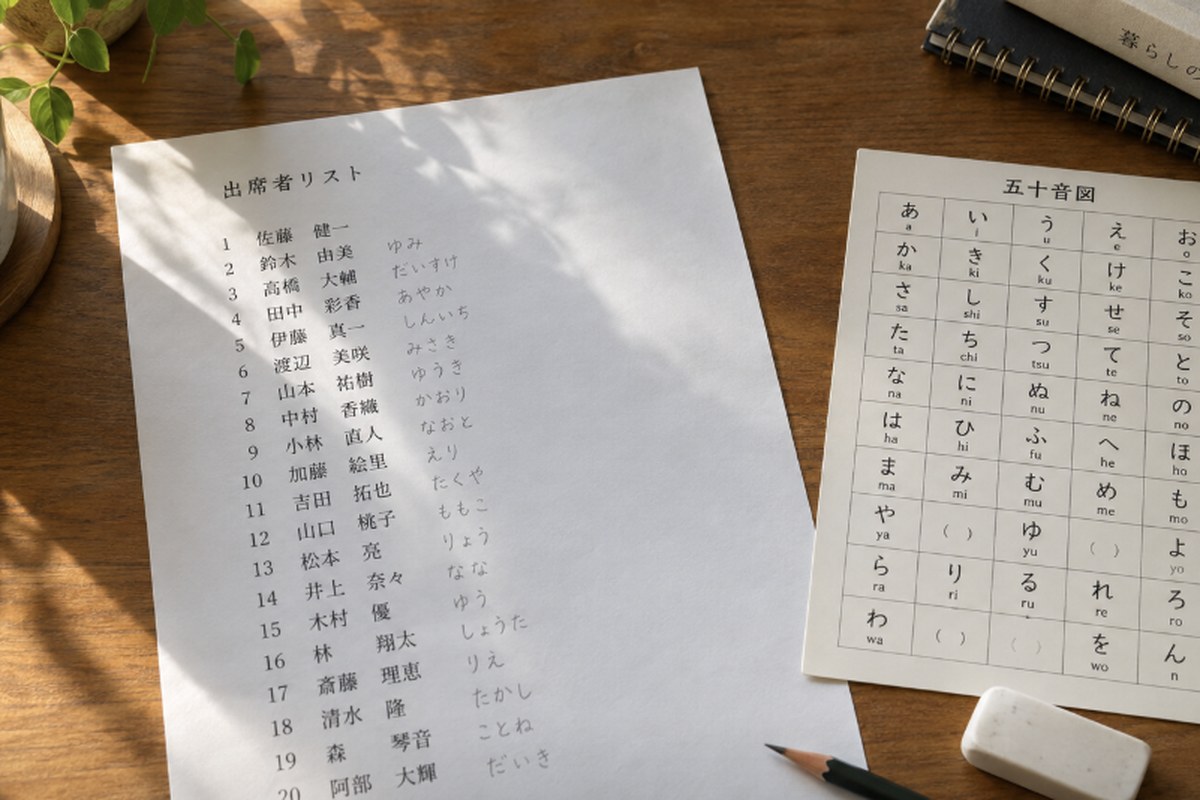 出席者リスト
1 佐藤 健一
2 鈴木 由美 ゆみ
3 高橋 大輔 だいすけ
4 田中 彩香 あやか
5 伊藤 真一 しんいち
6 渡辺 美咲 みさき
7 山本 祐樹 ゆうき
8 中村 香織 かおり
9 小林 直人 なおと
10 加藤 絵里 えり
11 吉田 拓也 たくや
12 山口 桃子 ももこ
13 松本 亮 りょう
14 井上 奈々 なな
15 木村 優 ゆう
16 林 翔太 しょうた
17 斎藤 理恵 りえ
18 清水 隆 たかし
19 森 琴音 ことね
20 阿部 大輝 だいき
暮らしの
五十音図
あ い う え お
a i u e o
か き く け こ
ka ki ku ke ko
さ し す せ そ
sa shi su se so
た ち つ て と
ta chi tsu te to
な に ぬ ね の
na ni nu ne no
は ひ ふ へ ほ
ha hi fu he ho
ま み む め も
ma mi mu me mo
や ( ) ゆ ( ) よ
ya yu yo
ら り る れ ろ
ra ri ru re ro
わ ( ) ( ) を ん
wa wo n